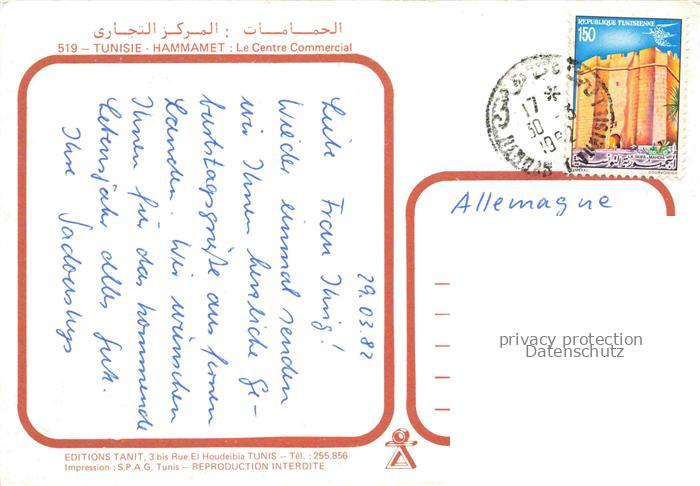 الحمامات : المركز التجاري
519 – TUNISIE - HAMMAMET : Le Centre Commercial
29.03.82
Liebe Frau Ihrig!
Wieder einmal senden
wir Ihnen herzliche Ge-
burtstagsgrüße aus fernen
Landen. Wir wünschen
Ihnen für das kommende
Lebensjahr alles Gute.
Ihre Sadowskys
REPUBLIQUE TUNISIENNE
150
17 *
30
1982
Allemagne
privacy protection
Datenschutz
EDITIONS TANIT, 3 bis Rue El Houdeibia TUNIS – Tél. : 255.856
Impression : S.P.A.G. Tunis – REPRODUCTION INTERDITE